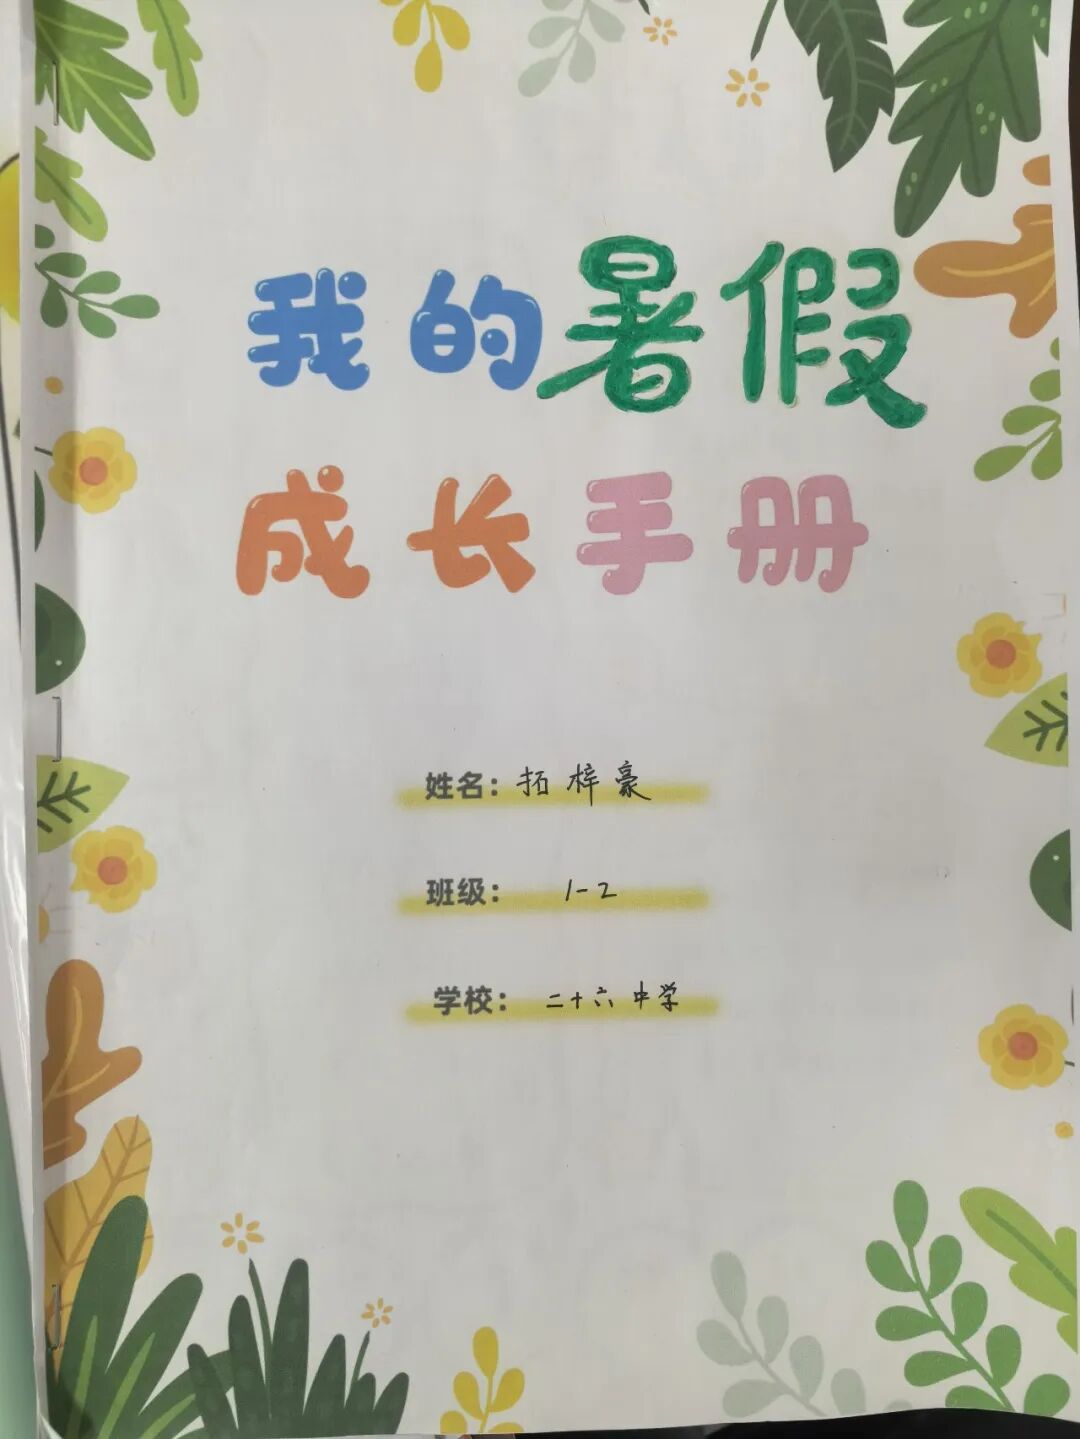 我的暑假
成长手册
姓名：拓梓豪
班级：1-2
学校：二十六中学